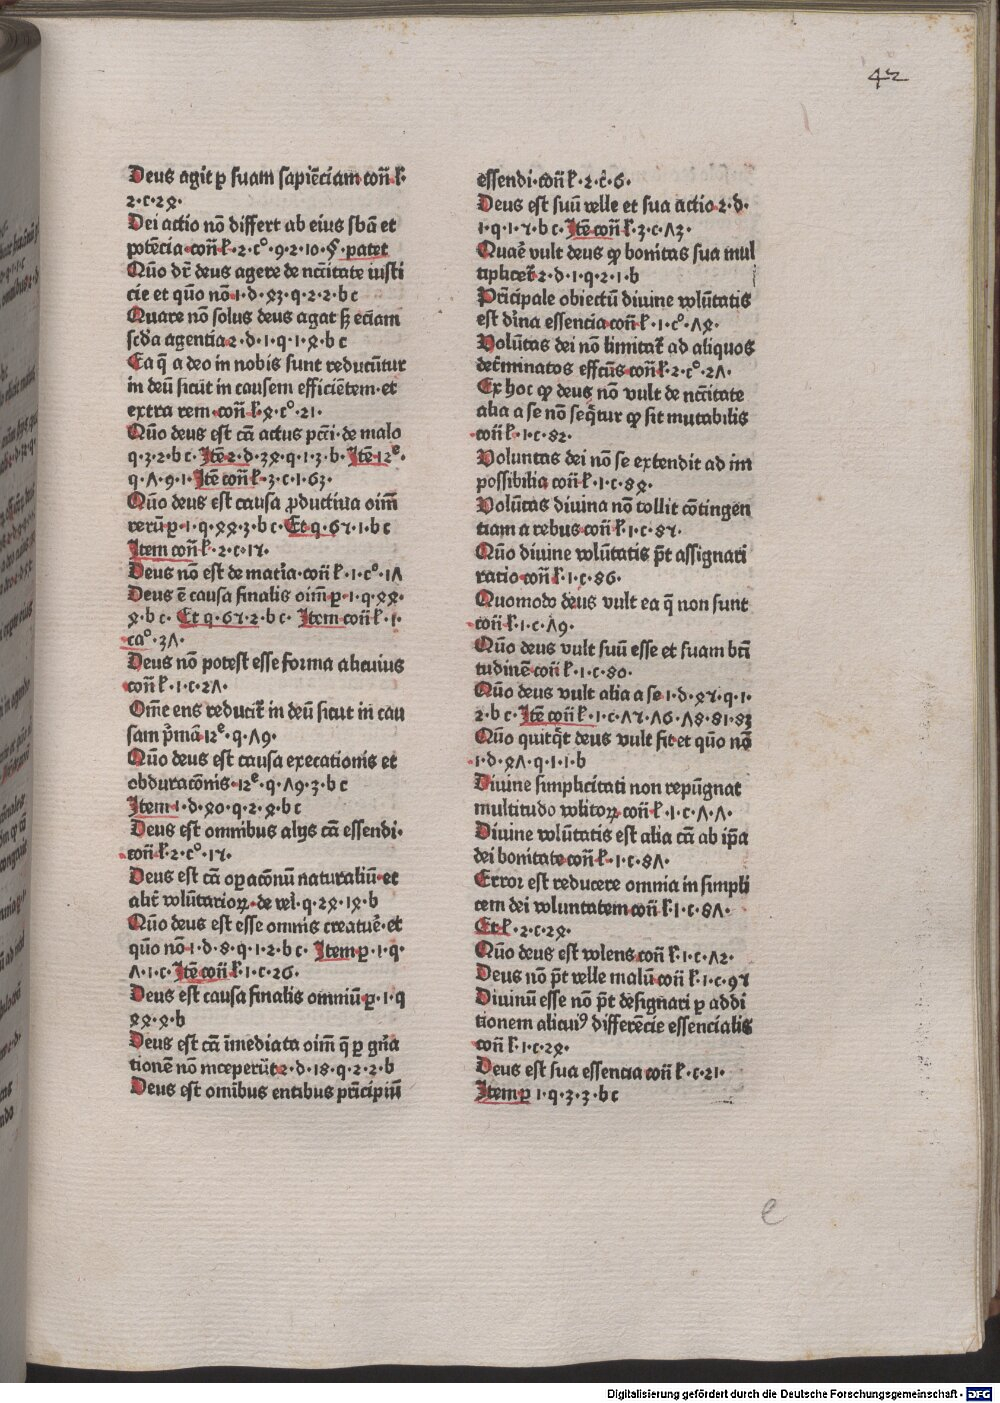 42
Deus agit p suam sapiēciam·con̄ l·
2·c·2ꝝ·
Dei actio nō differt ab eius sb̄a et
potēcia·con̄ l·2·c°·9·2·10·§·patet
Qūo dr̄ deus agere de nc̄itate iusti
cie et qūo nō·1·d·ꝝ3·q·2·2·b c
Quare nō solus deus agat sꝫ eciam
scd̄a agentia·2·d·1·q·1·ꝝ·b c
Ea q̄ a deo in nobis sunt reducūtur
in deū sicut in causem efficiētem·et
extra rem·con̄ l·ꝝ·c°·21·
Qūo deus est cā actus pcc̄i·de malo
q·3·2·b c·Itē 2·d·3ꝝ·q·1·3·b·Itē 12ᵉ·
q·Λ·9·1·Itē con̄ l·3·c·1·63·
Qūo deus est causa ꝓductiua oim̄
rerū·p·1·q·ꝝꝝ·3·b c·Et q·67·1·b c
Item con̄ l·2·c·17·
Deus nō est de mat̄ia·con̄ l·1·c°·1Λ
Deus ē causa finalis oim̄·p·1·q·ꝝꝝ·
ꝝ·b c·Et q·67·2·b c·Item con̄ l·1·
ca°·3Λ·
Deus nō potest esse forma alicuius
con̄ l·1·c·2Λ·
Om̄e ens reducit᷑ in deū sicut in cau
sam p̄mā·12ᵉ·q·Λ9·
Qūo deus est causa execationis et
obduracōnis·12ᵉ·q·Λ9·3·b c
Item·1·d·ꝝ0·q·2·ꝝ·b c
Deus est omnibus alijs cā essendi·
con̄ l·2·c°·17·
Deus est cā oꝑacōnū naturaliū·et
alit᷑ volūtarioꝝ·de vel·q·2ꝝ·1ꝝ·b
Qūo deus est esse omnis creatuē·et
qūo nō·1·d·8·q·1·2·b c·Item p·1·q·
Λ·1·c·Itē con̄ l·1·c·26·
Deus est causa finalis omniū·p·1·q
ꝝꝝ·ꝝ·b
Deus est cā īmediata oim̄ q̄ p gn̄a
tionē nō inceperūt·2·d·18·q·2·2·b
Deus est omībus entibus prīcipiū
essendi·con̄ l·2·c·6·
Deus est suū velle et sua actio·2·d·
1·q·1·7·b c·Itē con̄ l·3·c·Λ3·
Quaē vult deus ꝙ bonitas sua mul
tiplicet᷑·2·d·1·q·2·1·b
Prīcipale obiectū diuine volūtatis
est dīna essencia·con̄ l·1·c°·Λꝝ·
Volūtas dei nō limitat᷑ ad aliquos
det᷑minatos effc̄us·con̄ l·2·c°·2Λ·
Ex hoc ꝙ deus nō vult de nc̄itate
alia a se nō seq̄tur ꝙ sit mutabilis
con̄ l·1·c·82·
Voluntas dei nō se extendit ad im
possibilia·con̄ l·1·c·8ꝝ·
Volūtas diuina nō tollit cōtingen
tiam a rebus·con̄ l·1·c·87·
Qūo diuine volūtatis p̄t assignari
ratio·con̄ l·1·c·86·
Quomodo deus vult ea q̄ non sunt
con̄ l·1·c·Λ9·
Qūo deus vult suū esse et suam bt̄i
tudinē·con̄ l·1·c·80·
Qūo deus vult alia a se·1·d·ꝝ7·q·1·
2·b c·Itē con̄ l·1·c·Λ7·Λ6·Λ8·81·83
Qūo quitq̄t deus vult fit·et qūo nō
1·d·ꝝΛ·q·1·1·b
Diuine simplicitati non repūgnat
multitudo volitoꝝ·con̄ l·1·c·Λ·Λ·
Diuine volūtatis est alia cā ab ip̄a
dei bonitate·con̄ l·1·c·8Λ·
Error est reducere omnia in simpli
cem dei voluntatem·con̄ l·1·c·8Λ·
Et l·2·c·2ꝝ·
Qūo deus est volens·con̄ l·1·c·Λ2·
Deus nō p̄t velle malū·con̄ l·1·c·97
Diuinū esse nō p̄t designari p addi
tionem alicuiꝰ differēcie essencialis
con̄ l·1·c·2ꝝ·
Deus est sua essencia·con̄ l·c·21·
Item p·1·q·3·3·b c
e
Digitalisierung gefördert durch die Deutsche Forschungsgemeinschaft - DFG